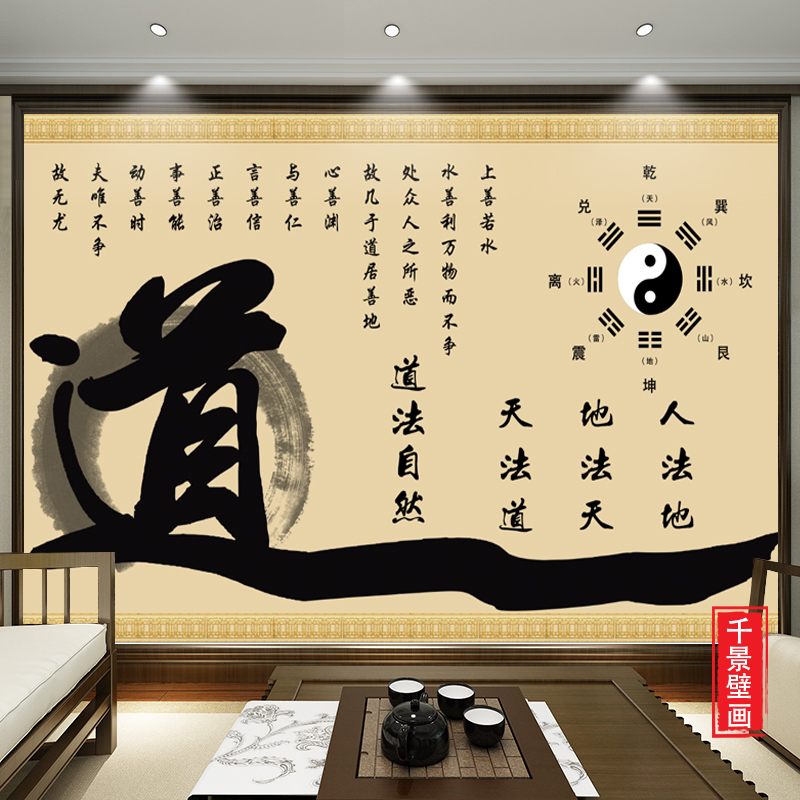 上善若水
水善利万物而不争
处众人之所恶
故几于道居善地
心善渊
与善仁
言善信
正善治
事善能
动善时
夫唯不争
故无尤
道
人法地
地法天
天法道
道法自然
乾
(天)
兑
(泽)
巽
(风)
离
(火)
(水)
坎
震
(雷)
(山)
艮
(地)
坤
千景壁画